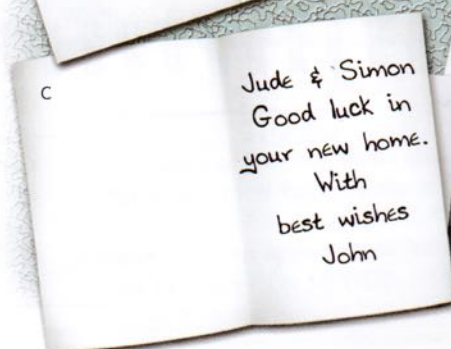 C
Jude & Simon
Good luck in
your new home.
With
best wishes
John